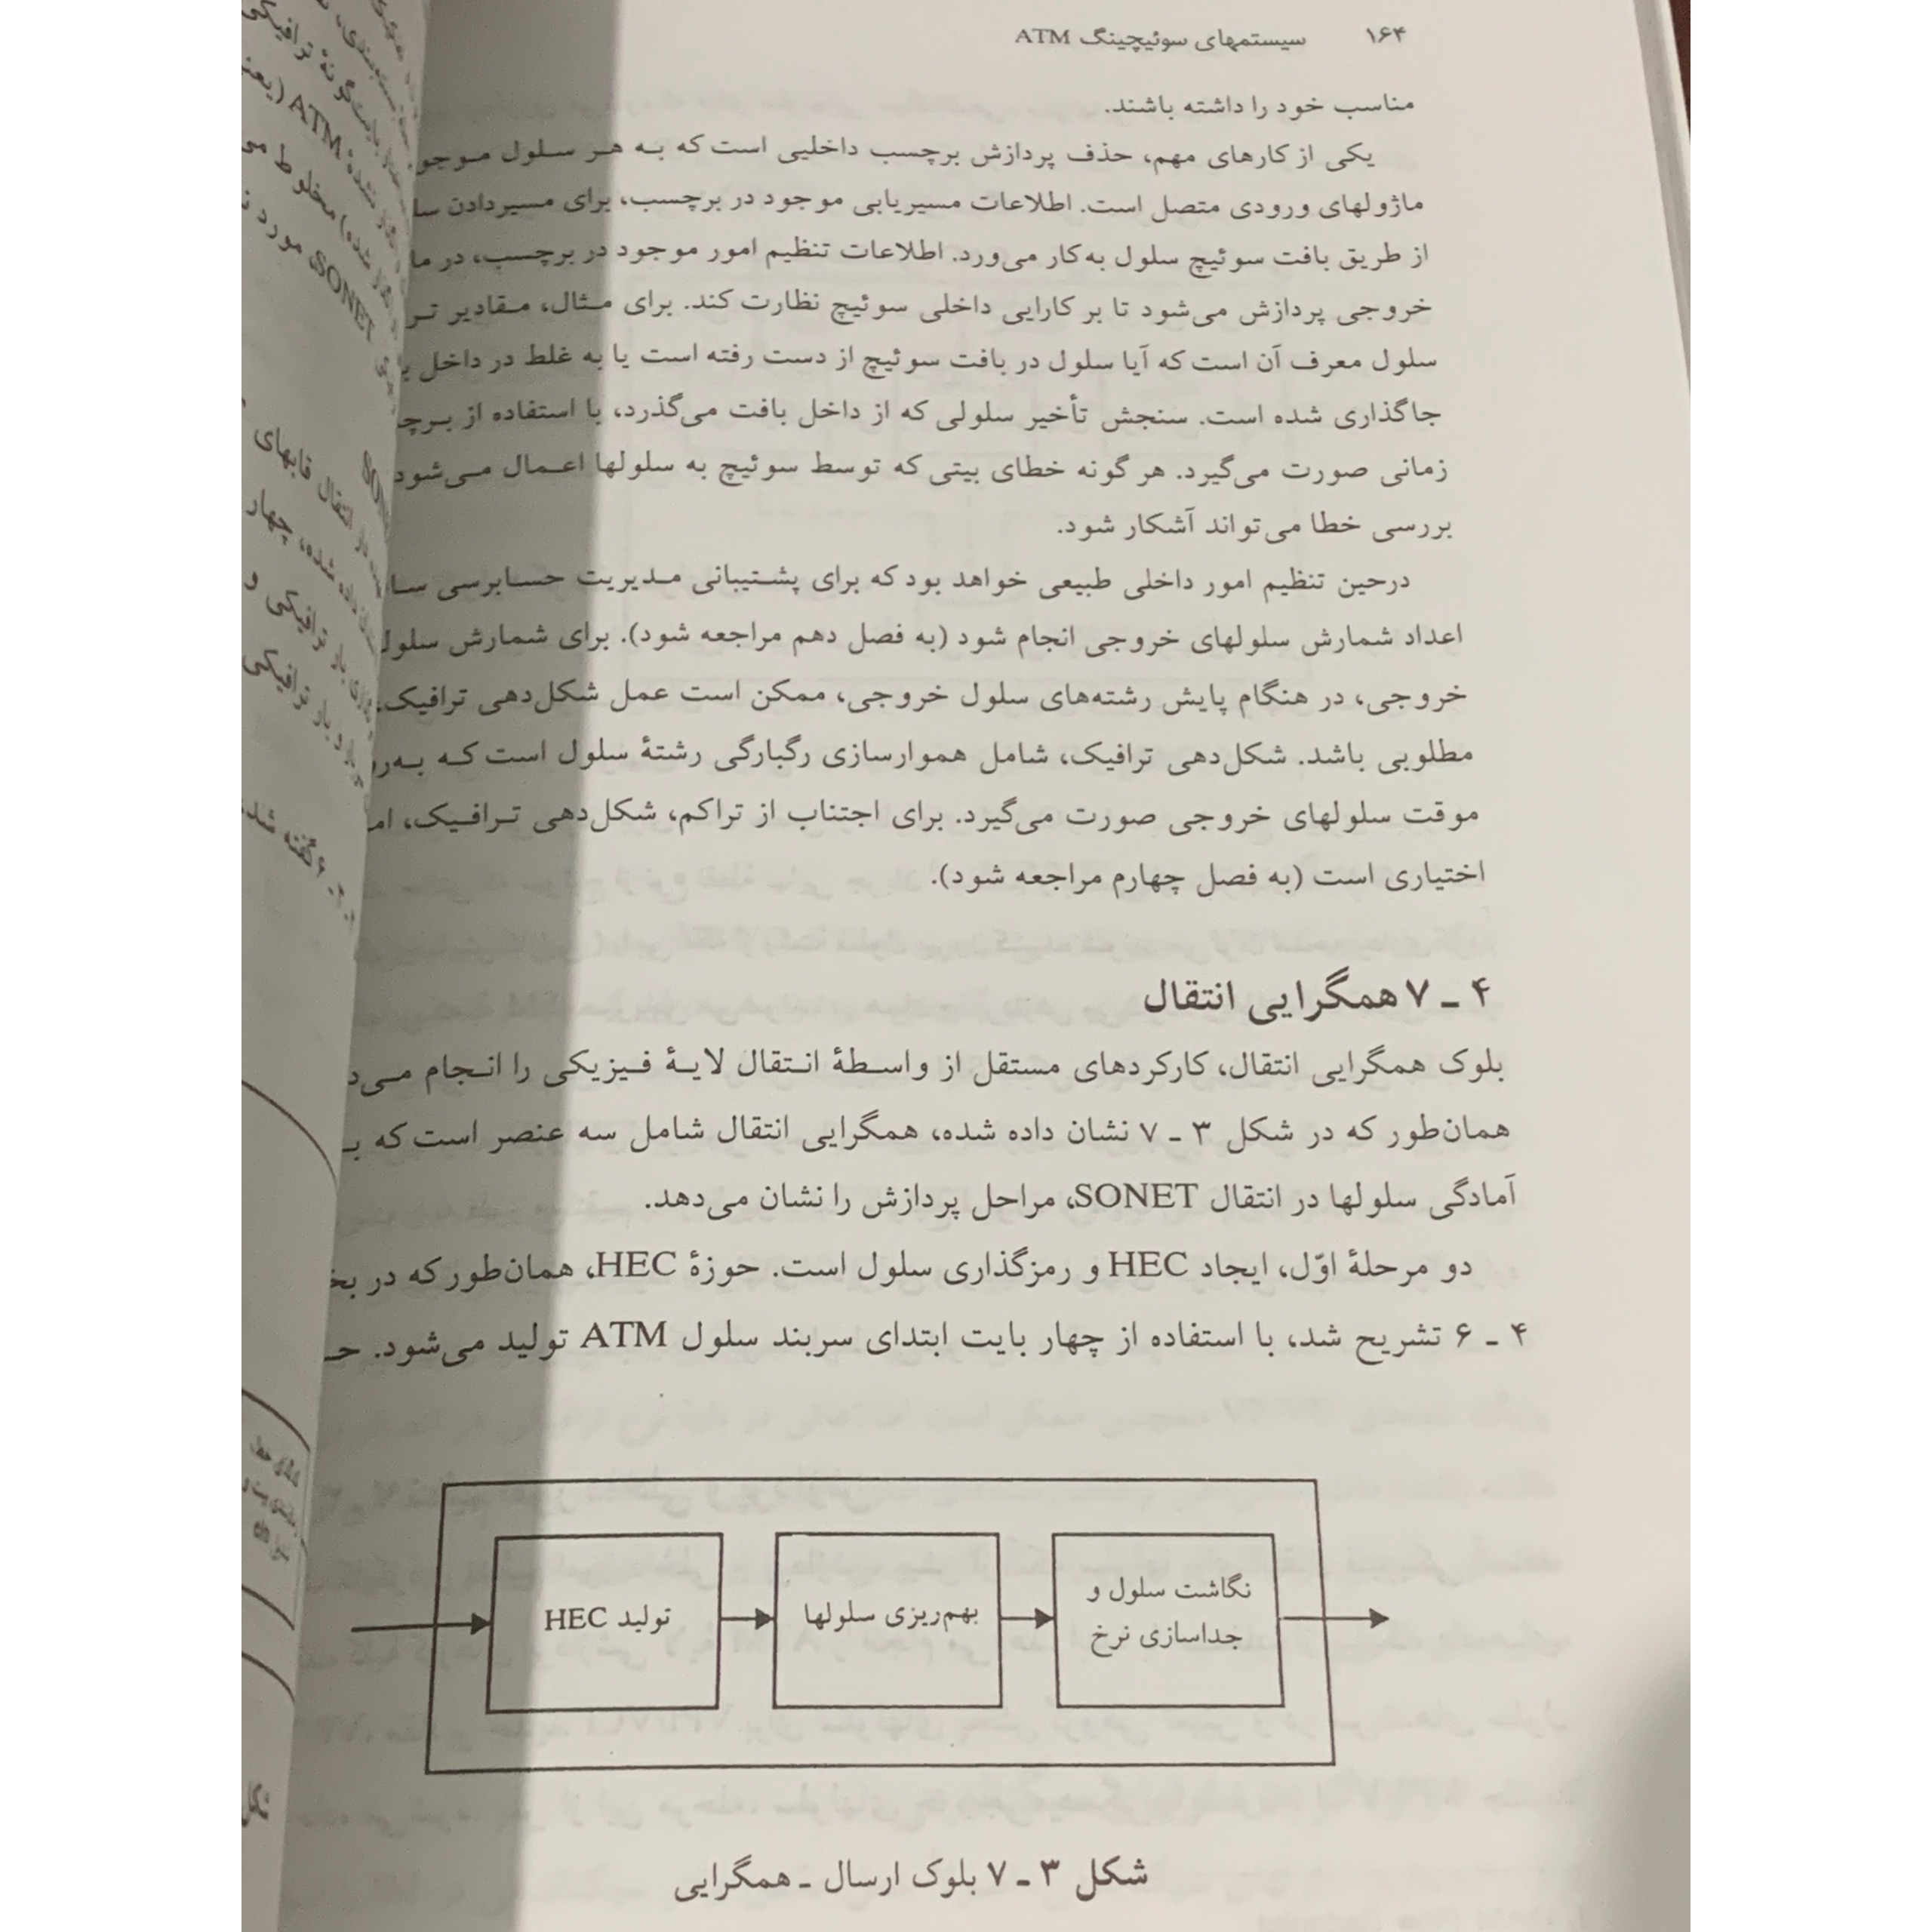 ۱۶۴ سیستمهای سوئیچینگ ATM
مناسب خود را داشته باشند.
یکی از کارهای مهم، حذف پردازش برچسب داخلیی است که به هر سلول
ماژولهای ورودی متصل است. اطلاعات مسیریابی موجود در برچسب، برای مسیردادن
از طریق بافت سوئیچ سلول به‌کار می‌ورد. اطلاعات تنظیم امور موجود در برچسب، در
خروجی پردازش می‌شود تا بر کارایی داخلی سوئیچ نظارت کند. برای مثال، مقادیر
سلول معرف آن است که آیا سلول در بافت سوئیچ از دست رفته است یا به غلط در داخل
جاگذاری شده است. سنجش تأخیر سلولی که از داخل بافت می‌گذرد، با استفاده از
زمانی صورت می‌گیرد. هر گونه خطای بیتی که توسط سوئیچ به سلولها اعمال می‌شود
بررسی خطا می‌تواند آشکار شود.
درحین تنظیم امور داخلی طبیعی خواهد بود که برای پشتیبانی مدیریت حسابرسی
اعداد شمارش سلولهای خروجی انجام شود (به فصل دهم مراجعه شود). برای شمارش
خروجی، در هنگام پایش رشته‌های سلول خروجی، ممکن است عمل شکل‌دهی ترافیک
مطلوبی باشد. شکل‌دهی ترافیک، شامل هموارسازی رگبارگی رشتهٔ سلول است که
موقت سلولهای خروجی صورت می‌گیرد. برای اجتناب از تراکم، شکل‌دهی ترافیک،
اختیاری است (به فصل چهارم مراجعه شود).
۴ ـ ۷ همگرایی انتقال
بلوک همگرایی انتقال، کارکردهای مستقل از واسطهٔ انتقال لایهٔ فیزیکی را انجام
همان‌طور که در شکل ۳ ـ ۷ نشان داده شده، همگرایی انتقال شامل سه عنصر است که
آمادگی سلولها در انتقال SONET، مراحل پردازش را نشان می‌دهد.
دو مرحلهٔ اوّل، ایجاد HEC و رمزگذاری سلول است. حوزهٔ HEC، همان‌طور که در
۴ ـ ۶ تشریح شد، با استفاده از چهار بایت ابتدای سربند سلول ATM تولید می‌شود.
تولید HEC
بهم‌ریزی سلولها
نگاشت سلول و
جداسازی نرخ
شکل ۳ ـ ۷ بلوک ارسال ـ همگرایی